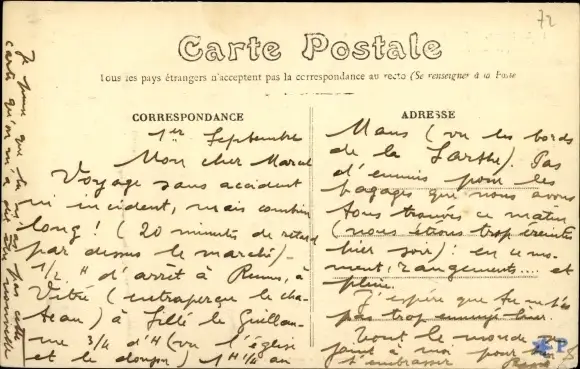 72
Carte Postale
Tous les pays étrangers n'acceptent pas la correspondance au recto (Se renseigner à la Poste
CORRESPONDANCE
1er Septembre
Mon cher Marcel
Voyage sans accident
ni incident, mais combien
long ! (20 minutes de retard
par dessus le marché) -
1/2 H d'arrêt à Rennes, à
Vitré (entraperçu le châ-
teau) à Sillé le Guillau-
me 3/4 d'H (vu l'église
et le donjon) 1H 1/4 au
ADRESSE
Mans (vu les bords
de la Sarthe). Pas
d'ennuis pour les
bagages que nous avons
tous trouvés ce matin
(nous étions trop éreintés
hier soir) : en ce mo-
ment, rangements.... et
pluie.
J'espère que tu n'as
pas trop ennuyé hier.
Tout le monde se
joint à moi pour
t'embrasser
Je pense que tu n'as pas cette
carte qu'on m'a dit être nouvelle